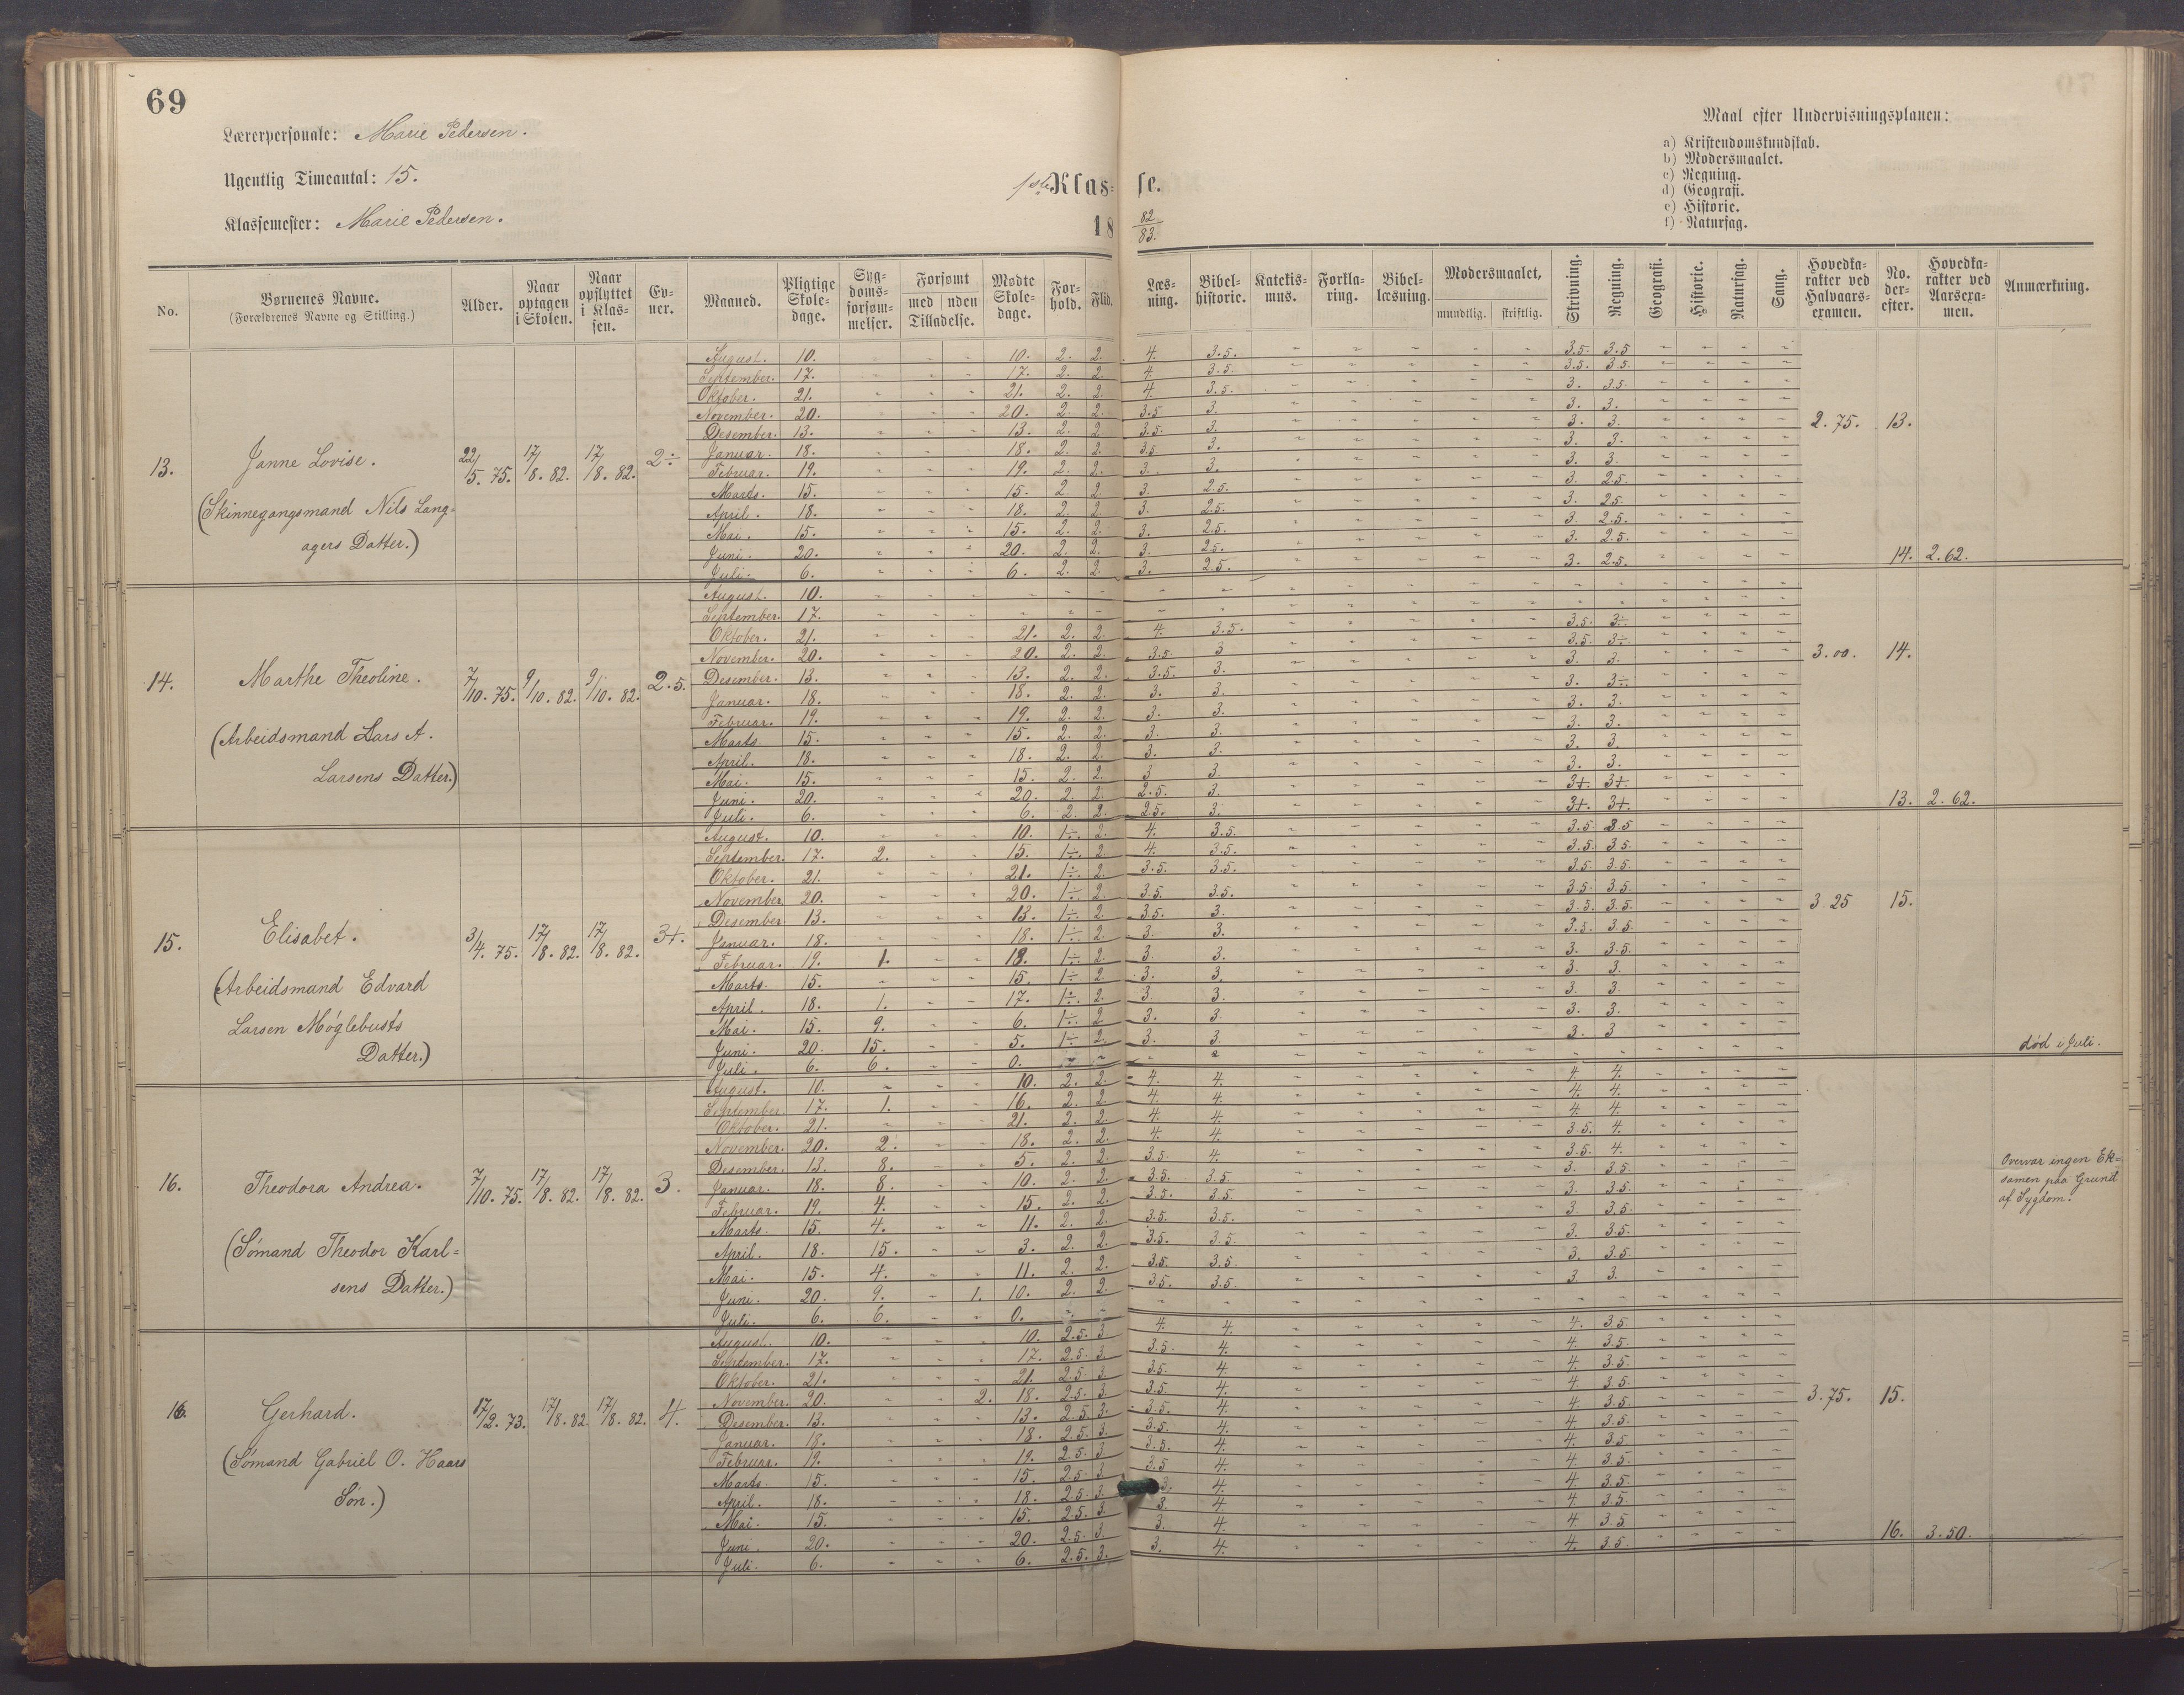 69
Lærerpersonale: Marie Pedersen.
Ugentlig Timeantal: 15.
Klassemester: Marie Pedersen.
1ste Klasse.
18 82/83.
Maal efter Undervisningsplanen:
a) Kristendomskundskab.
b) Modersmaalet.
c) Regning.
d) Geografi.
e) Historie.
f) Naturfag.
No. | Børnenes Navne. (Forældrenes Navne og Stilling.) | Alder. | Naar optagen i Skolen. | Naar opflyttet i Klassen. | Evner. | Maaned. | Pligtige Skoledage. | Sygdomsforsømmelser. | Forsømt med | uden Tilladelse. | Mødte Skoledage. | Forhold. | Flid. | Læsning. | Bibelhistorie. | Katekismus. | Forklaring. | Bibellæsning. | Modersmaalet, mundtlig. | skriftlig. | Skrivning. | Regning. | Geografi. | Historie. | Naturfag. | Sang. | Hovedkarakter ved Halvaarsexamen. | No. derefter. | Hovedkarakter ved Aarsexamen. | Anmærkning.
13. Janne Lovise. 22/5. 75. 17/8. 82. 17/8. 82. 2÷
(Skinnegangsmand Nils Langagers Datter.)
August. 10. 10. 2. 2. 4. 3.5. 3.5. 3.5
September. 17. 17. 2. 2. 4. 3.5. 3.5. 3.5.
Oktober. 21. 21. 2. 2. 4. 3.5. 3. 3.5.
November. 20. 20. 2. 2. 3.5 3. 3. 3.
Desember. 13. 13. 2. 2. 3.5. 3. 3. 3. 2.75. 13.
Januar. 18. 18. 2. 2. 3.5 3. 3. 3.
Februar. 19. 19. 2. 2. 3. 3. 3. 3.
Marts. 15. 15. 2. 2. 3. 2.5. 3. 2.5.
April. 18. 18. 2. 2. 3. 2.5. 3. 2.5.
Mai. 15. 15. 2. 2. 3. 2.5. 3. 2.5.
Juni. 20. 20. 2. 2. 3. 2.5. 3. 2.5.
Juli. 6. 6. 2. 2. 3. 2.5. 3. 2.5. 14. 2.62.
14. Marthe Theoline. 7/10. 75. 9/10. 82. 9/10. 82. 2.5.
(Arbeidsmand Lars A. Larsens Datter.)
August. 10.
September. 17.
Oktober. 21. 21. 2. 2. 4. 3.5. 3.5. 3÷
November. 20. 20. 2. 2. 3.5. 3 3.5. 3÷
Desember. 13. 13. 2. 2. 3.5. 3. 3. 3. 3.00. 14.
Januar. 18. 18. 2. 2. 3. 3. 3. 3÷
Februar. 19. 19. 2. 2. 3. 3. 3. 3.
Marts. 15. 15. 2. 2. 3. 3. 3. 3.
April. 18. 18. 2. 2. 3. 3. 3. 3.
Mai. 15. 15. 2. 2. 3 3. 3. 3.
Juni. 20. 20. 2. 2. 2.5. 3. 3+. 3+.
Juli. 6. 6. 2. 2. 2.5. 3. 3+. 3+. 13. 2.62.
15. Elisabet. 3/4. 75. 17/8. 82. 17/8. 82. 3+.
(Arbeidsmand Edvard Larsen Møglebusts Datter.)
August. 10. 10. 1÷. 2. 4. 3.5. 3.5 3.5
September. 17. 2. 15. 1÷. 2. 4. 3.5. 3.5. 3.5.
Oktober. 21. 21. 1÷. 2. 3.5. 3.5. 3.5. 3.5.
November. 20. 20. 1÷. 2. 3.5. 3.5. 3.5. 3.5.
Desember 13. 13. 1÷. 2. 3.5. 3. 3.5. 3.5. 3.25 15.
Januar. 18. 18. 1÷. 2. 3. 3. 3.5. 3.5.
Februar. 19. 1. 18. 1÷. 2. 3. 3. 3. 3.5.
Marts. 15. 15. 1÷. 2. 3. 3. 3. 3.
April. 18. 1. 17. 1÷. 2. 3. 3. 3. 3.
Mai. 15. 9. 6. 1÷. 2 3. 3. 3. 3.
Juni. 20. 15. 5. 1÷ 2. 3. 3. 3. 3
Juli. 6. 6. 0. død i Juli.
16. Theodora Andrea. 7/10. 75. 17/8. 82. 17/8. 82. 3.
(Sømand Theodor Karlsens Datter.)
August. 10. 10. 2. 2. 4. 4. 4. 4.
September. 17. 1. 16. 2. 2. 4. 4. 4. 4.
Oktober. 21. 21. 2. 2. 4. 4. 4. 4.
November. 20. 2. 18. 2. 2. 4. 4. 3.5. 4.
Desember. 13. 8. 5. 2. 2. 3.5. 4. 3.5. 4.
Januar. 18. 8. 10. 2. 2. 3.5. 3.5. 3. 3.5.
Februar. 19. 4. 15. 2. 2. 3.5. 3.5. 3. 3.5.
Marts. 15. 4. 11. 2. 2. 3.5. 3.5. 3 3.5.
April. 18. 15. 3. 2. 2. 3.5. 3.5. 3. 3.5.
Mai. 15. 4. 11. 2. 2. 3.5. 3.5. 3. 3.5.
Juni. 20. 9. 1. 10. 2. 2. 3.5. 3.5. 3. 3.
Juli. 6. 6. 0.
Overvar ingen Eksamen paa Grund af Sygdom.
16. Gerhard. 17/2. 73. 17/8. 82 17/8. 82. 4.
(Sømand Gabriel O. Haars Søn.)
August. 10. 10. 2.5. 3 4. 4. 4. 3.5.
September. 17. 17. 2.5 3. 3.5. 4. 4. 3.5.
Oktober. 21. 21. 2.5 3. 3.5. 4. 4. 3.5.
November. 20. 2. 18. 2.5. 3. 3.5. 4. 4. 3.5.
Desember. 13. 13. 2.5. 3. 3.5. 4. 4 3.5. 3.75. 15.
Januar. 18. 18. 2.5. 3. 3.5. 4. 4. 3.5.
Februar. 19. 19. 2.5. 3 3.5. 4. 4. 3.5.
Marts. 15. 15. 2.5. 3 3.5 4. 4. 3.5.
April. 18. 18. 2.5. 3. 3. 4. 4. 3.5.
Mai. 15. 15. 2.5. 3. 3. 4. 4. 3.5
Juni. 20. 20. 2.5. 3. 3. 4. 4. 3.5
Juli. 6. 6. 2.5. 3. 3. 4. 4. 3.5. 16. 3.50.